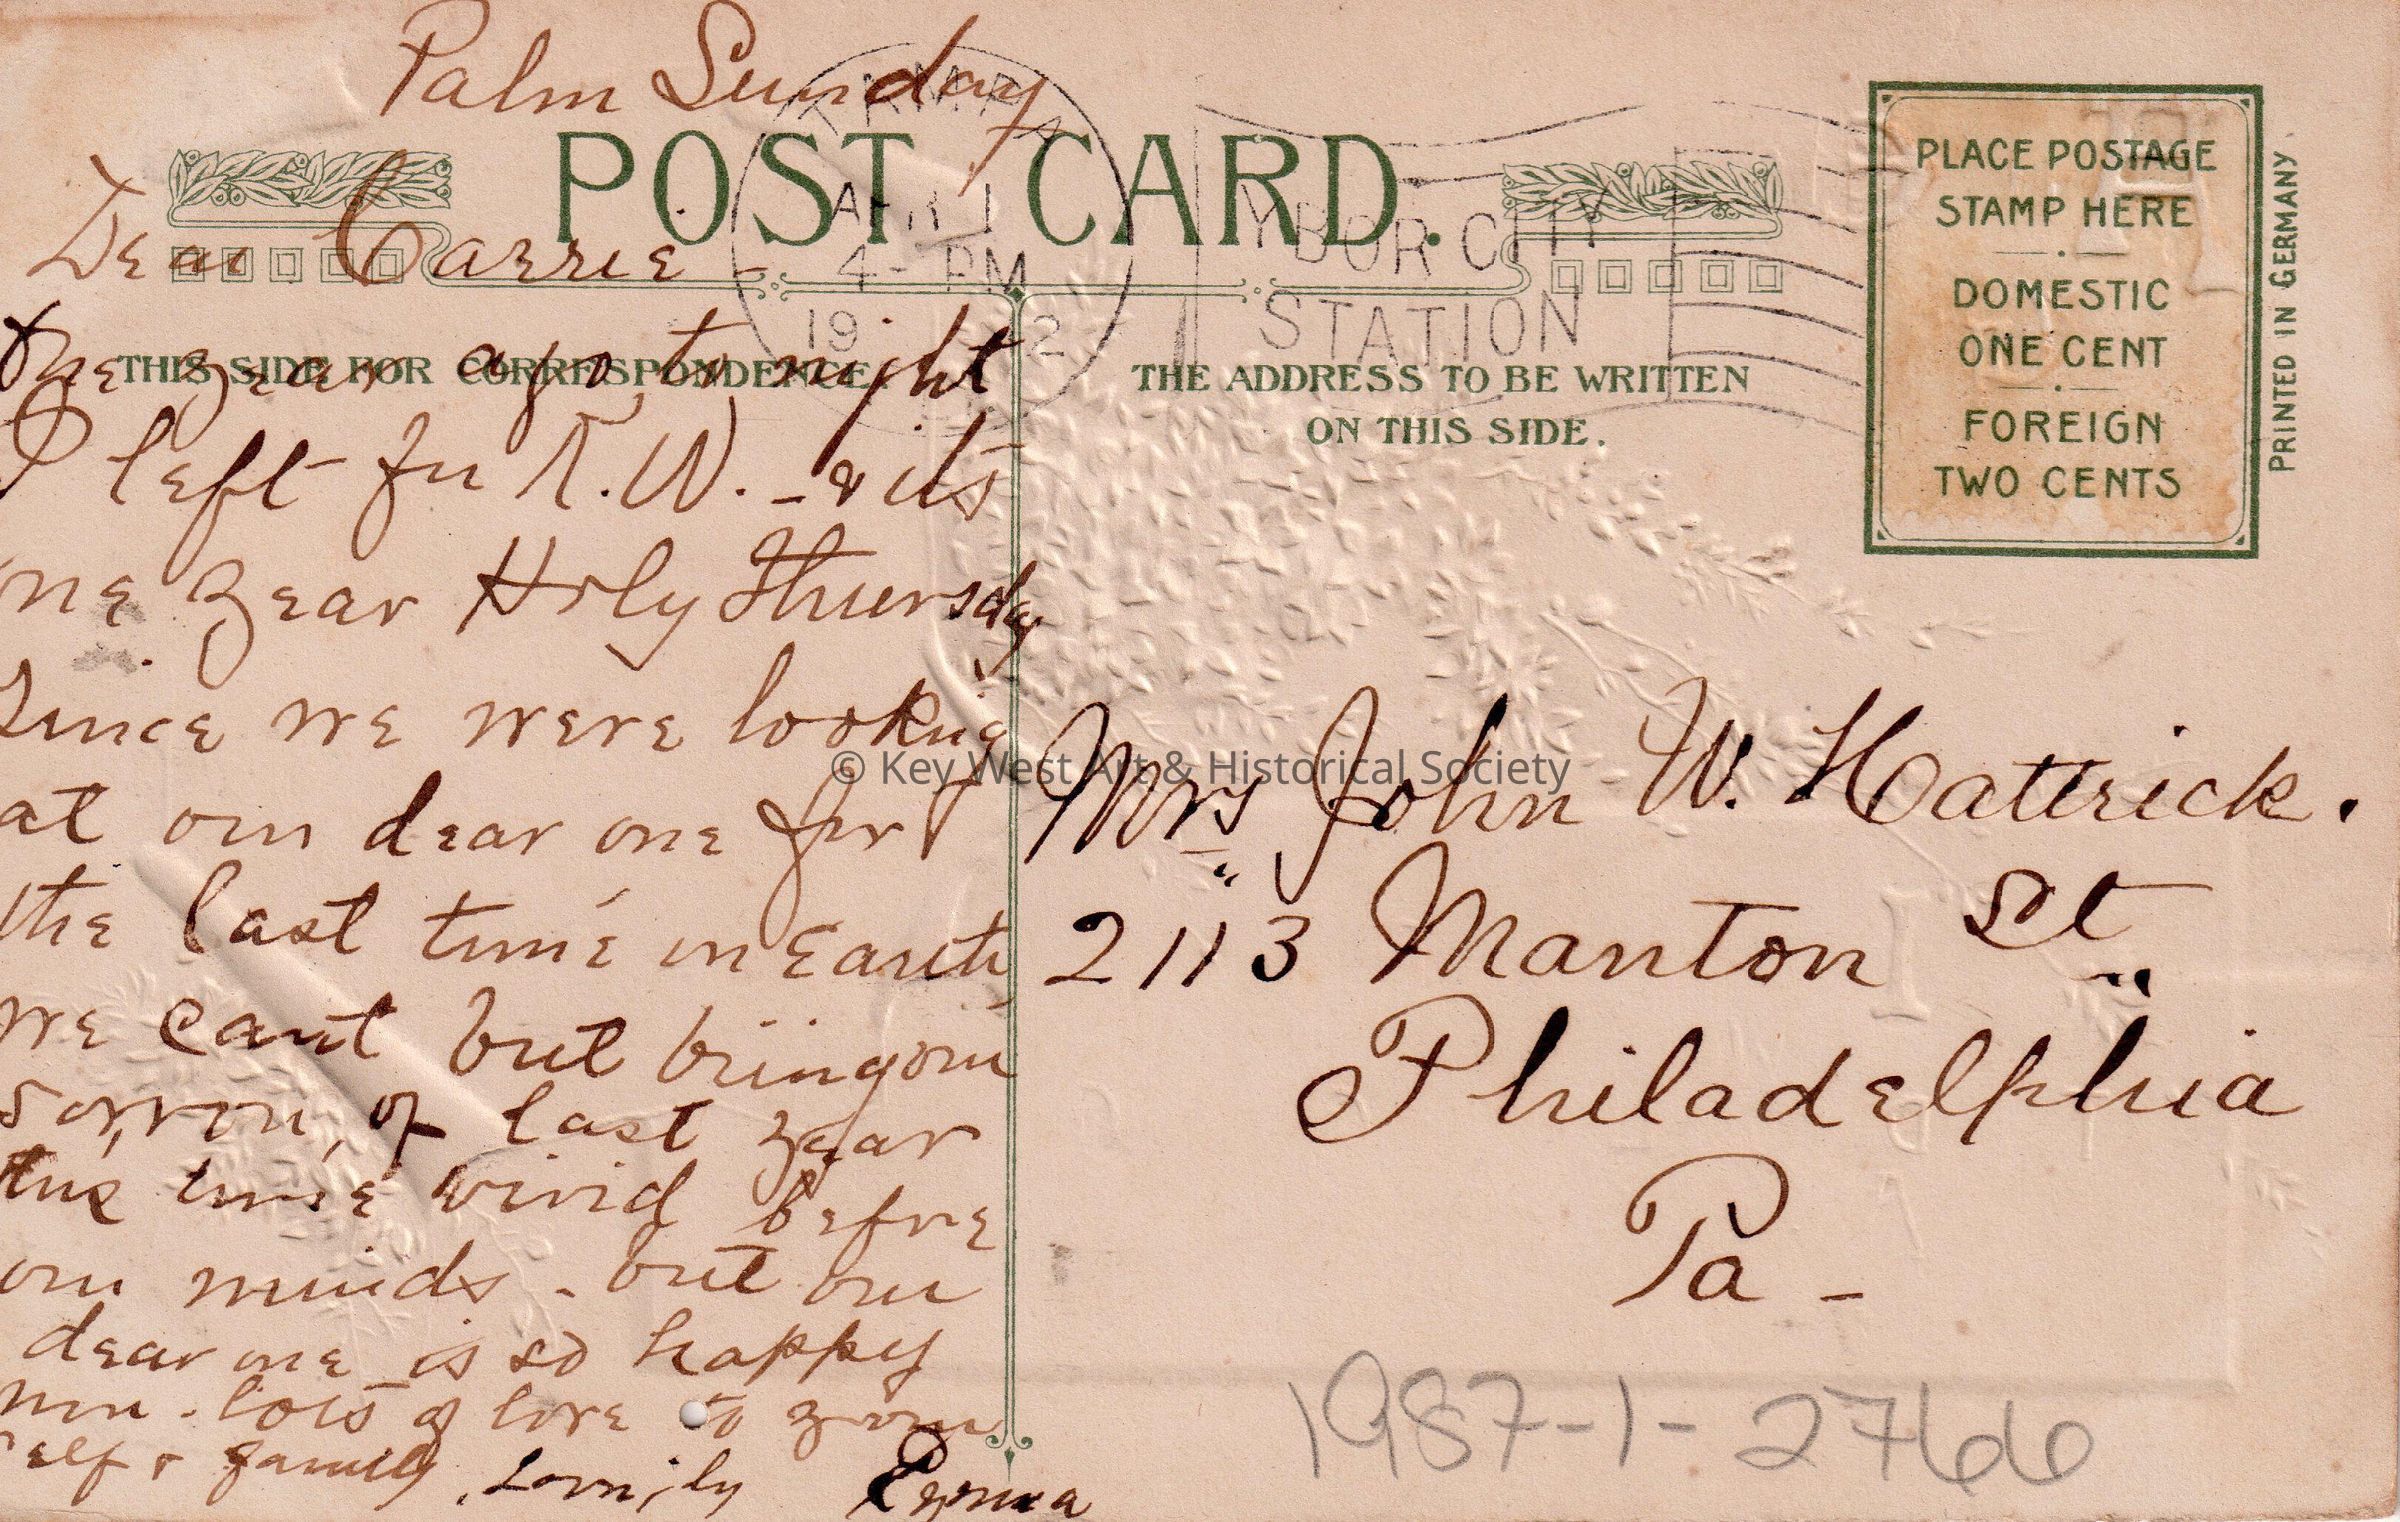 Palm Sunday
TAMPA
APR 1
4 - PM
19 2
YBOR CITY
STATION
POST CARD.
PLACE POSTAGE
STAMP HERE
DOMESTIC
ONE CENT
FOREIGN
TWO CENTS
PRINTED IN GERMANY
THIS SIDE FOR CORRESPONDENCE.
THE ADDRESS TO BE WRITTEN
ON THIS SIDE.
Dear Carrie -
One year ago to night
I left for K.W. - & its
one year Holy Thursday
since we were looking
at our dear one for
the last time on Earth
we cant but bring our
sorrow, of last year
this time vivid before
our minds - but our
dear one is so happy
now - lots of love to your
self & family, Lovingly Emma
Mrs John W. Hattrick.
2113 Manton St
Philadelphia
Pa -
1987-1-2766
© Key West Art & Historical Society